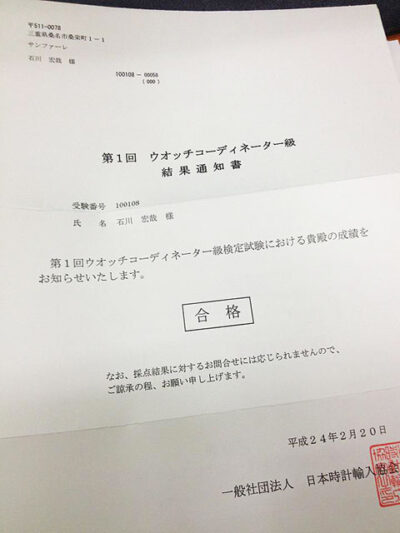 〒511-0078
三重県桑名市桑栄町1-1
サンファーレ
石川 宏哉 様
100108 - 00058
(000)
第1回 ウオッチコーディネーター級
結果通知書
受験番号 100108
氏 名 石川 宏哉 様
第1回ウオッチコーディネーター級検定試験における貴殿の成績を
お知らせいたします。
合 格
なお、採点結果に対するお問合せには応じられませんので、
ご諒承の程、お願い申し上げます。
平成24年2月20日
一般社団法人 日本時計輸入協会